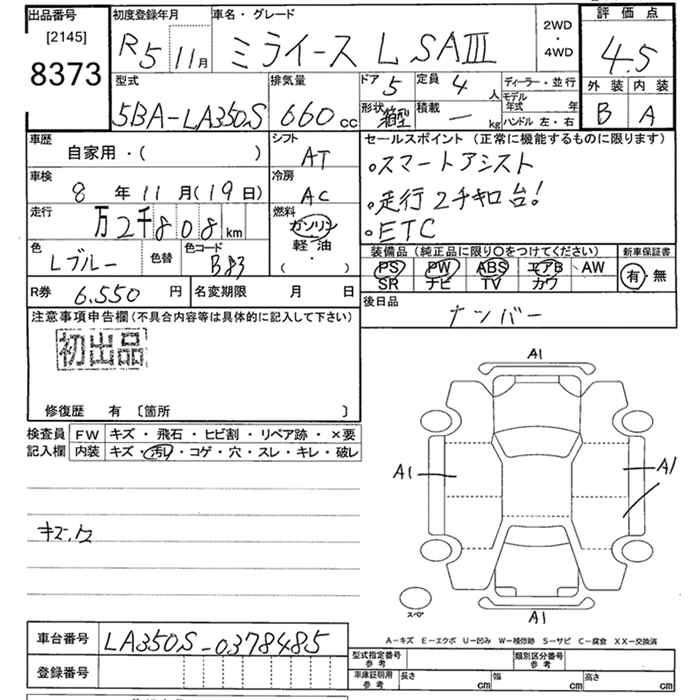 出品番号 初度登録年月 車名・グレード 2WD・4WD 評価点
[2145] R5 11月 ミライース L SAⅢ 4.5
8373 型式 排気量 ドア 5 定員 4人 ディーラー・並行 外装 内装
5BA-LA350S 660cc 形状 箱型 積載 ― kg モデル年式 年 ハンドル 左・右 B A
車歴 シフト セールスポイント(正常に機能するものに限ります)
自家用・( ) AT 。スマートアシスト
車検 8年11月(19日) 冷房 AC 。走行2千キロ台!
走行 万2千808km 燃料 ガソリン 。ETC
色 Lブルー 色替 色コード B83 軽油 ( ・ )
装備品(純正品に限り〇をつけてください) 新車保証書
PS PW ABS エアB AW 有・無
SR ナビ TV カワ
R券 6,550円 名変期限 月 日 後日品
ナンバー
注意事項申告欄(不具合内容等は具体的に記入して下さい)
初出品
A1
修復歴 有 〔箇所 〕
検査員 FW キズ・飛石・ヒビ割・リペア跡・×要
記入欄 内装 キズ・汚れ・コゲ・穴・スレ・キレ・破レ
A1 A1
スペア
A1
A-キズ E-エクボ U-凹み W-補修跡 S-サビ C-腐食 XX-交換済
車台番号 LA350S-0378485 型式指定番号 参考 類別区分番号 参考
登録番号 車庫証明用 参考 長さ cm 幅 cm 高さ cm